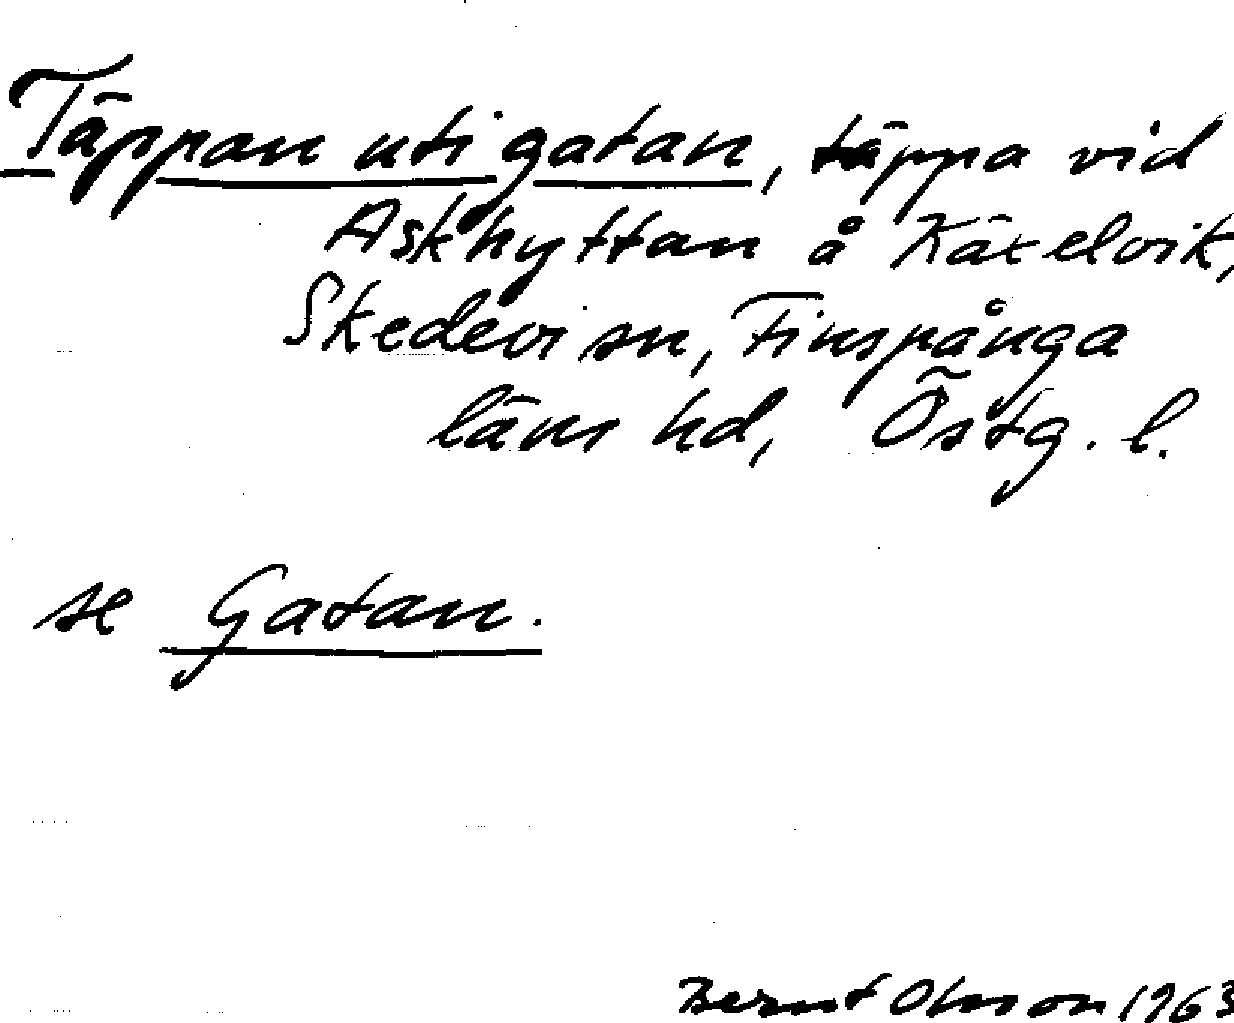 Täppan uti gatan, täppa vid
Askhyttan å Käxelvik,
Skedevi sn, Finspånga
läns hd, Östg. l.
se Gatan.
Bernt Olsson 1963